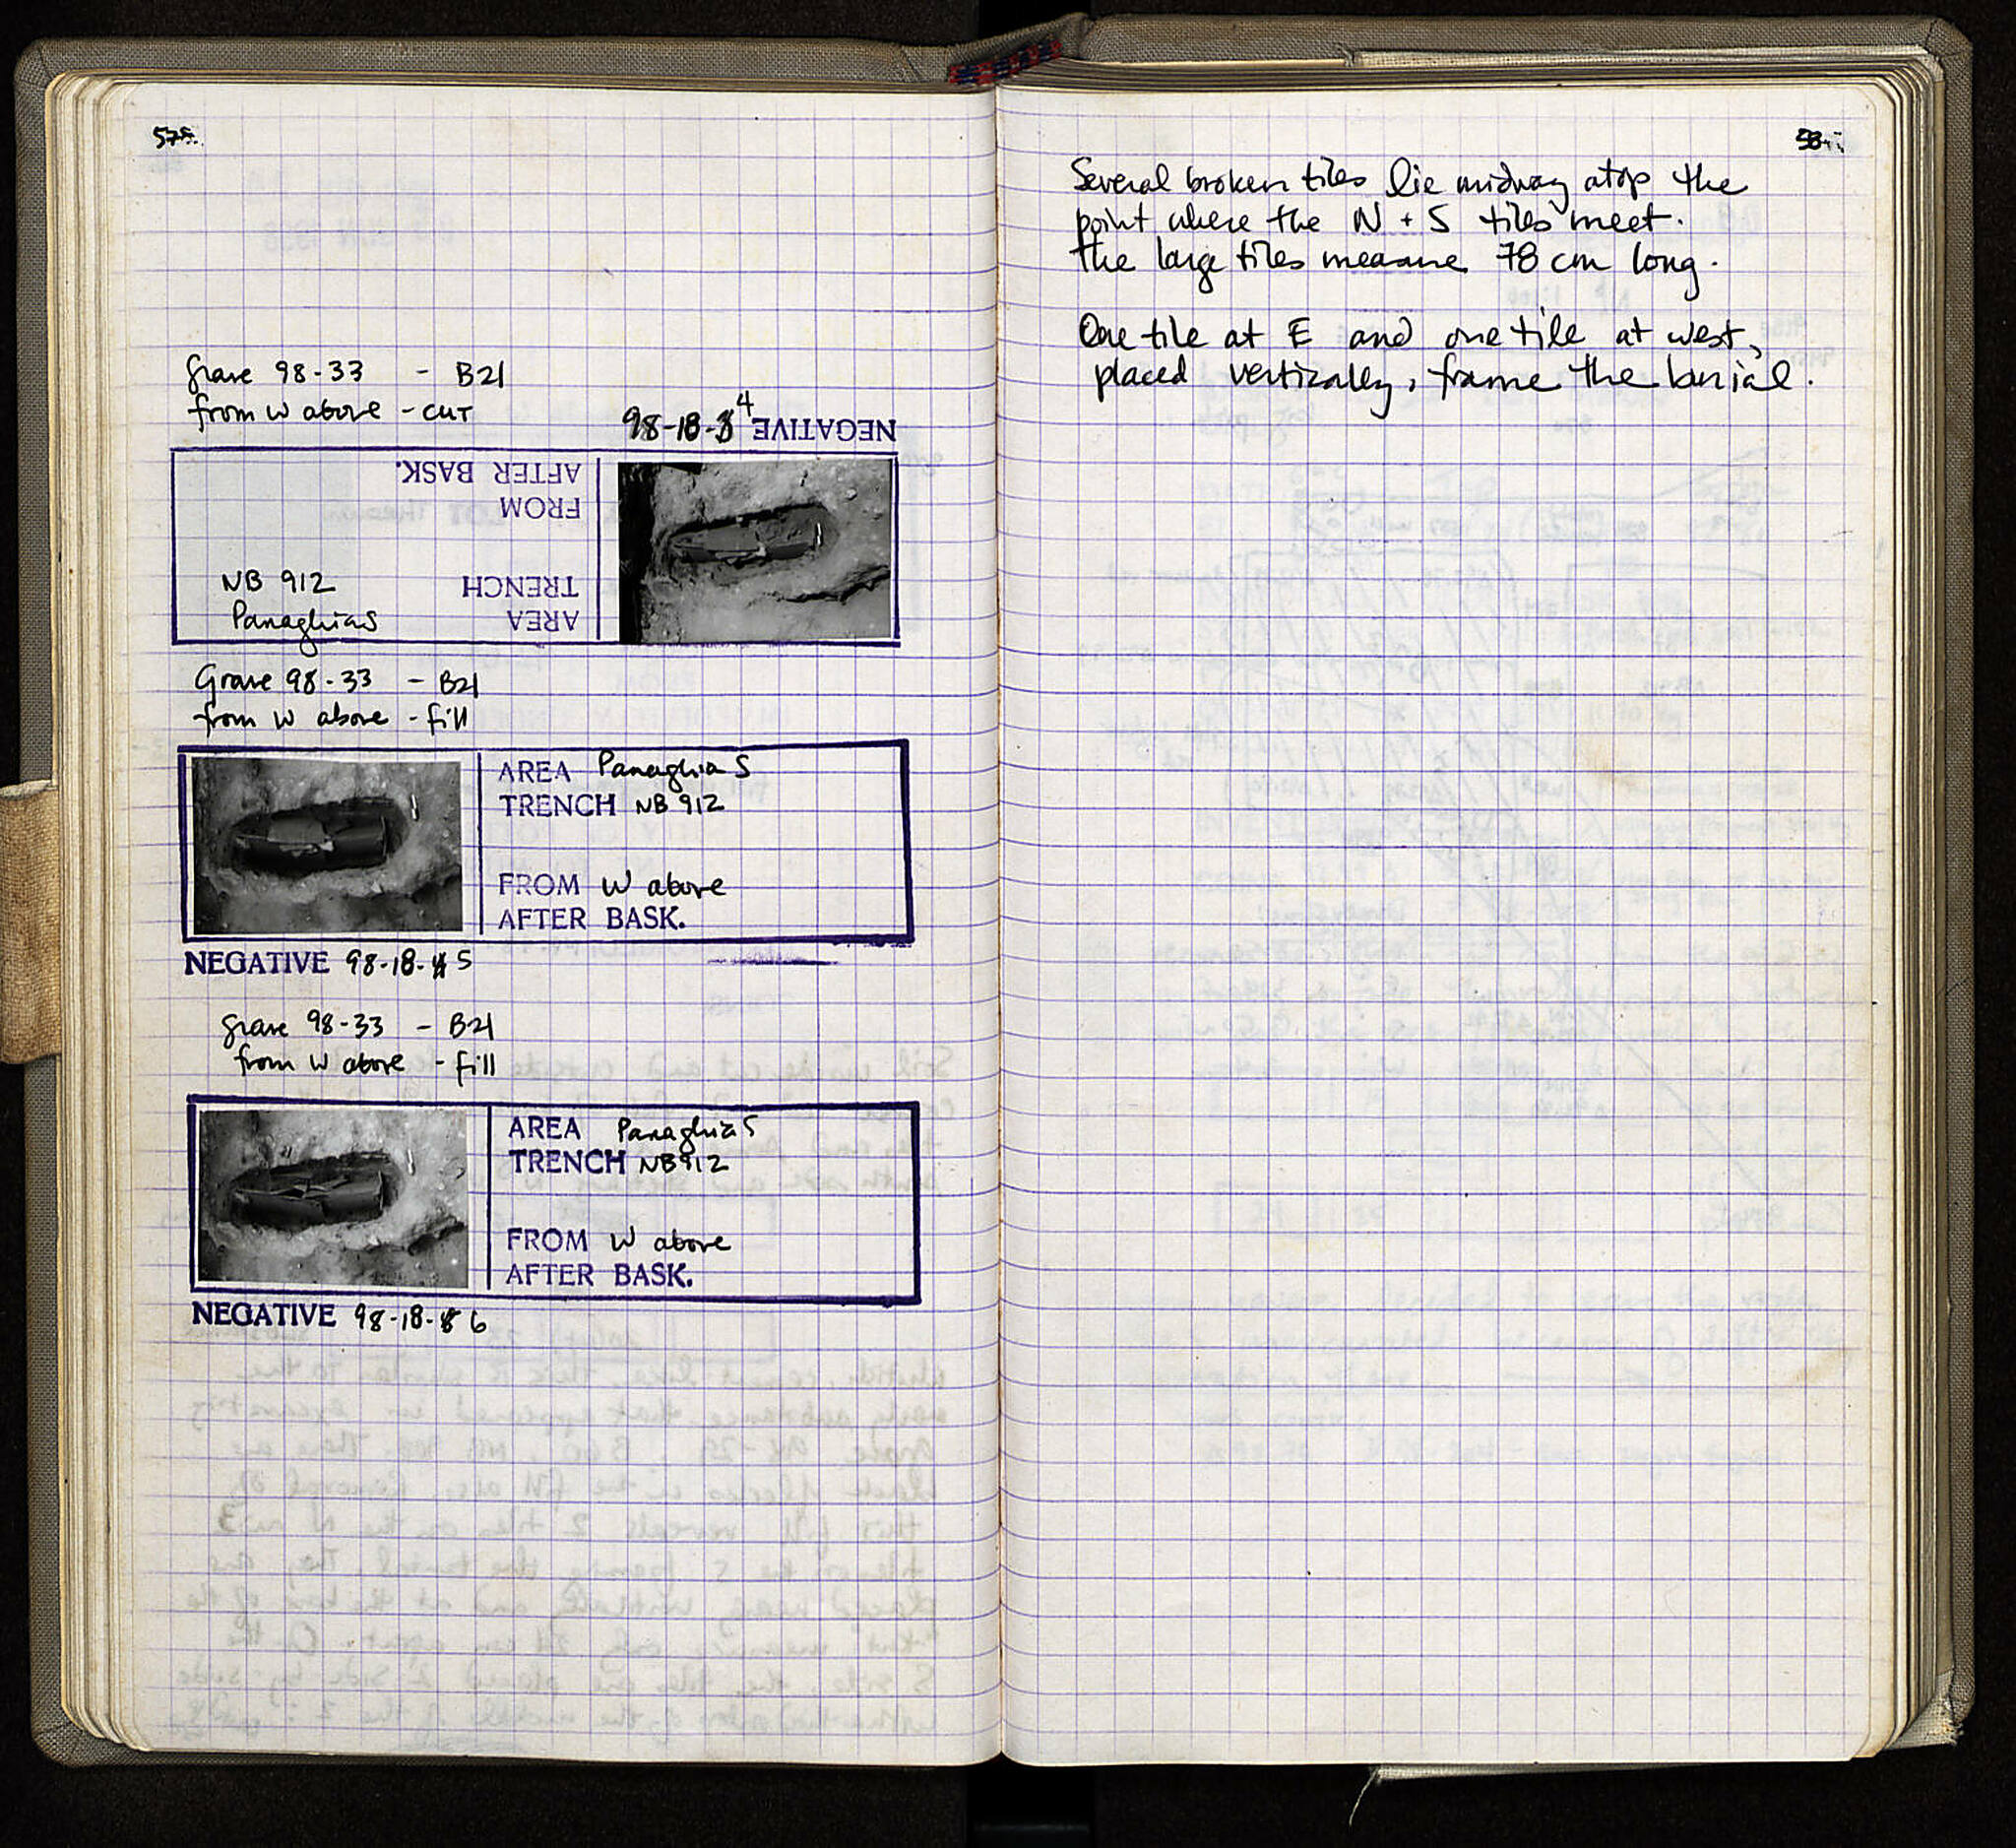 57
Grave 98-33 - B21
from W above - cut
98-18-4 NEGATIVE
AFTER BASK.
FROM
NB 912 TRENCH
Panaghia S AREA
Grave 98-33 - B21
from W above - fill
AREA Panaghia S
TRENCH NB 912
FROM W above
AFTER BASK.
NEGATIVE 98-18-5
Grave 98-33 - B21
from W above - fill
AREA Panaghia S
TRENCH NB 912
FROM W above
AFTER BASK.
NEGATIVE 98-18-6
58
Several broken tiles lie midway atop the
point where the N + S tiles meet.
The large tiles measure 78 cm long.
One tile at E and one tile at west,
placed vertically, frame the burial.